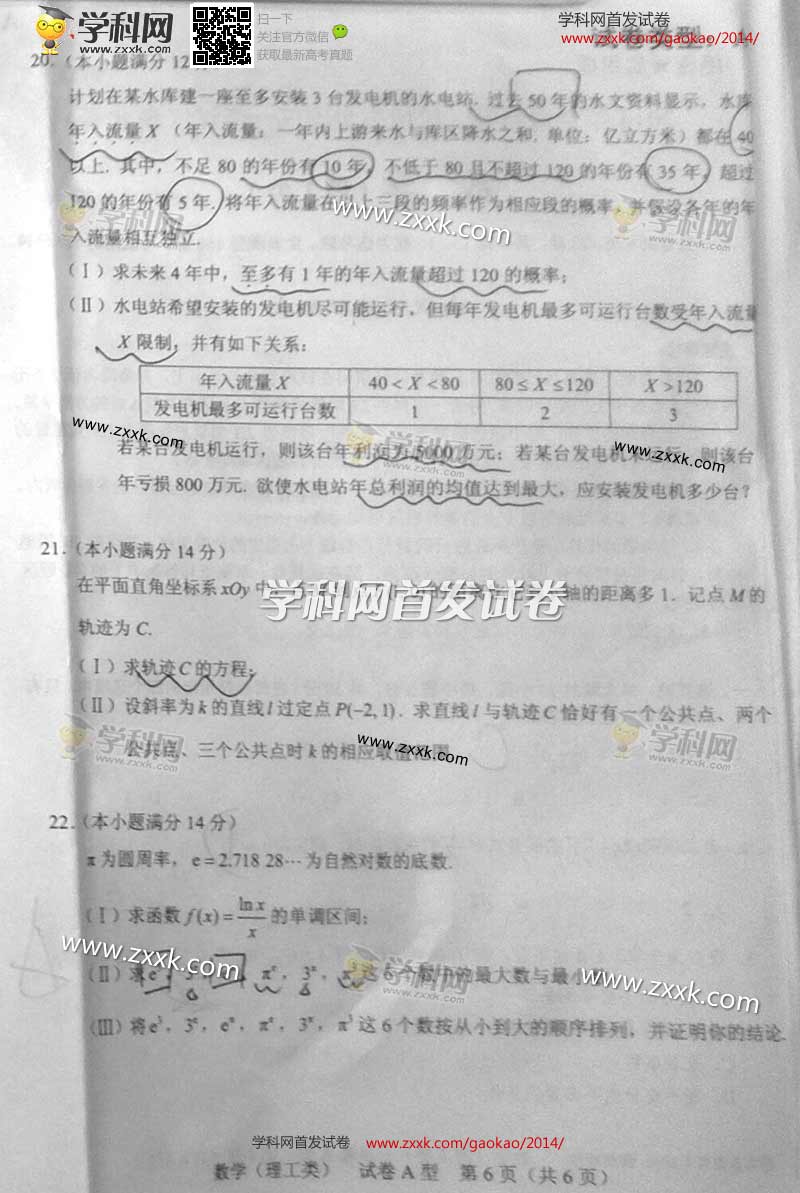 学科网
www.zxxk.com
扫一下
关注官方微信
获取最新高考真题
学科网首发试卷
www.zxxk.com/gaokao/2014/
试卷类型
20.（本小题满分 12
计划在某水库建一座至多安装 3 台发电机的水电站. 过去 50 年的水文资料显示，水库
年入流量 X （年入流量：一年内上游来水与库区降水之和. 单位：亿立方米）都在 40
以上. 其中，不足 80 的年份有 10 年，不低于 80 且不超过 120 的年份有 35 年，超过
120 的年份有 5 年. 将年入流量在以上三段的频率作为相应段的概率，并假设各年的年
学科网
www.zxxk.com
www.zxxk.com
学科网
www.zxxk.com
入流量相互独立.
（Ⅰ）求未来 4 年中，至多有 1 年的年入流量超过 120 的概率；
（Ⅱ）水电站希望安装的发电机尽可能运行，但每年发电机最多可运行台数受年入流量
X 限制，并有如下关系：
年入流量 X 40 < X < 80 80 ≤ X ≤ 120 X > 120
发电机最多可运行台数 1 2 3
www.zxxk.com
学科网
www.zxxk.com
www.zxxk.com
若某台发电机运行，则该台年利润为 5000 万元；若某台发电机 则该台
年亏损 800 万元. 欲使水电站年总利润的均值达到最大，应安装发电机多少台？
21.（本小题满分 14 分）
在平面直角坐标系 xOy 中， 轴的距离多 1．记点 M 的
学科网首发试卷
轨迹为 C.
（Ⅰ）求轨迹 C 的方程；
（Ⅱ）设斜率为 k 的直线 l 过定点 P(−2, 1)．求直线 l 与轨迹 C 恰好有一个公共点、两个
公共点、三个公共点时 k 的相应取值范围.
学科网
www.zxxk.com
www.zxxk.com
学科网
www.zxxk.com
22.（本小题满分 14 分）
π 为圆周率，e = 2.718 28⋯ 为自然对数的底数.
（Ⅰ）求函数 f(x) = ln x / x 的单调区间；
www.zxxk.com
学科网
www.zxxk.com
www.zxxk.com
（Ⅱ）求 e³，3 π^e，3^π，π³ 这 6 个数中的最大数与最
（Ⅲ）将 e³，3^e，e^π，π^e，3^π，π³ 这 6 个数按从小到大的顺序排列，并证明你的结论.
学科网首发试卷 www.zxxk.com/gaokao/2014/
数学（理工类） 试卷 A 型 第 6 页（共 6 页）